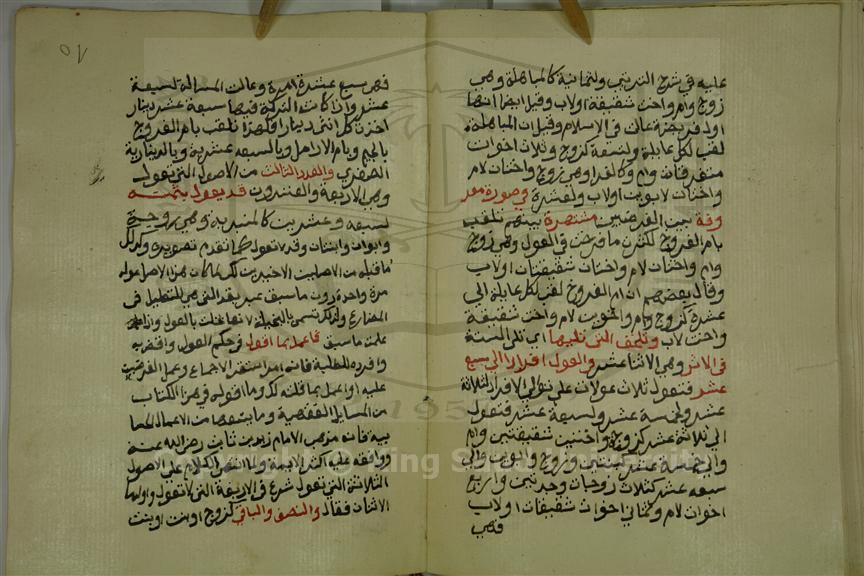 عليه في شرح الترتيب ولثمانية كالمباهلة وهي
زوج وام واخت شقيقة اولاب وقيل ايضا انها
اول فريضة عالت في الاسلام وقيل ان المباهلة
لقب لكل عايلة ولتسعة كزوج وثلاث اخوات
متفرقات وام وكالغرا وهي زوج واختان لام
واختان لابوين اولاب ولعشرة في صورة معر
وفة بين الفرضيين مشتهرة بينهم تلقب
بام الفروخ لكثرة ما فرخت في العول وهي زوج
وام واختان لام واختان شقيقتان اولاب
وقال بعضهم ان ام الفروخ لقب لكل عايلة الى
عشرة كزوج وام واخوين لام واخت شقيقة
واخت لاب وتلحق التي تليها اي تلي الستة
في الاثر وهي الاثنا عشر والعول افرادا الى سبع
عشر فتعول ثلاث عولات على توالي الافراد لثلاثة
عشر ولخمسة عشر ولسبعة عشر فتعول
الى ثلاثة عشر كزوج واختين شقيقتين وام
والى خمسة عشر كبنتين وزوج وابوين والى
سبعه عشر كثلاث زوجات وجدتين واربع
اخوات لام وثماني اخوات شقيقات اولاب
فهي
فهن سبع عشرة امرة وعالت المسالة لسبعة
عشر واذا كانت التركة فيها سبعة عشر دينار
اخذت كل انثى دينار اولهذا تلقب بام الفروج
بالجيم وبام الارامل وبالسبعه عشرية وبالدينارية
الصغرى والعدد الثالث من الاصول التي تعول
وهي الاربعة والعشرون قد يعول بثمنه
لسبعه وعشرين كالمنبرية وهي زوجة
وابوان وابنتان وقد لا تعول كما تقدم تصويره وكذلك
ما قبله من الاصلين الاخيرين لكن
مرة واحدة دون ما سبق
المضارع ولذلك تسمى بالبخيلة لانها بخلت بالعول واذا
علمت ما سبق فاعمل بما اقول في حكم العول واقض به
وافرده للطلبة فانه امر استقر الاجماع وعمل الفرضيين
عليه او اعمل بما قلته لك وما اقوله في هذا الكتاب
من المسايل الفقهية وما يتبعها من الاعمال الحسا
بية فانه مذهب الامام زيد بن ثابت رضي الله عنه
ووافقه عليه اكثر الايمة ولما انهى الكلام على الاصول
الثلاثة التي تعول شرع في الاربعة التي لا تعول واولها
الاثنان فقال والنصف والباقي كزوج او بنت او بنت
Copyright © King Saud University
1957